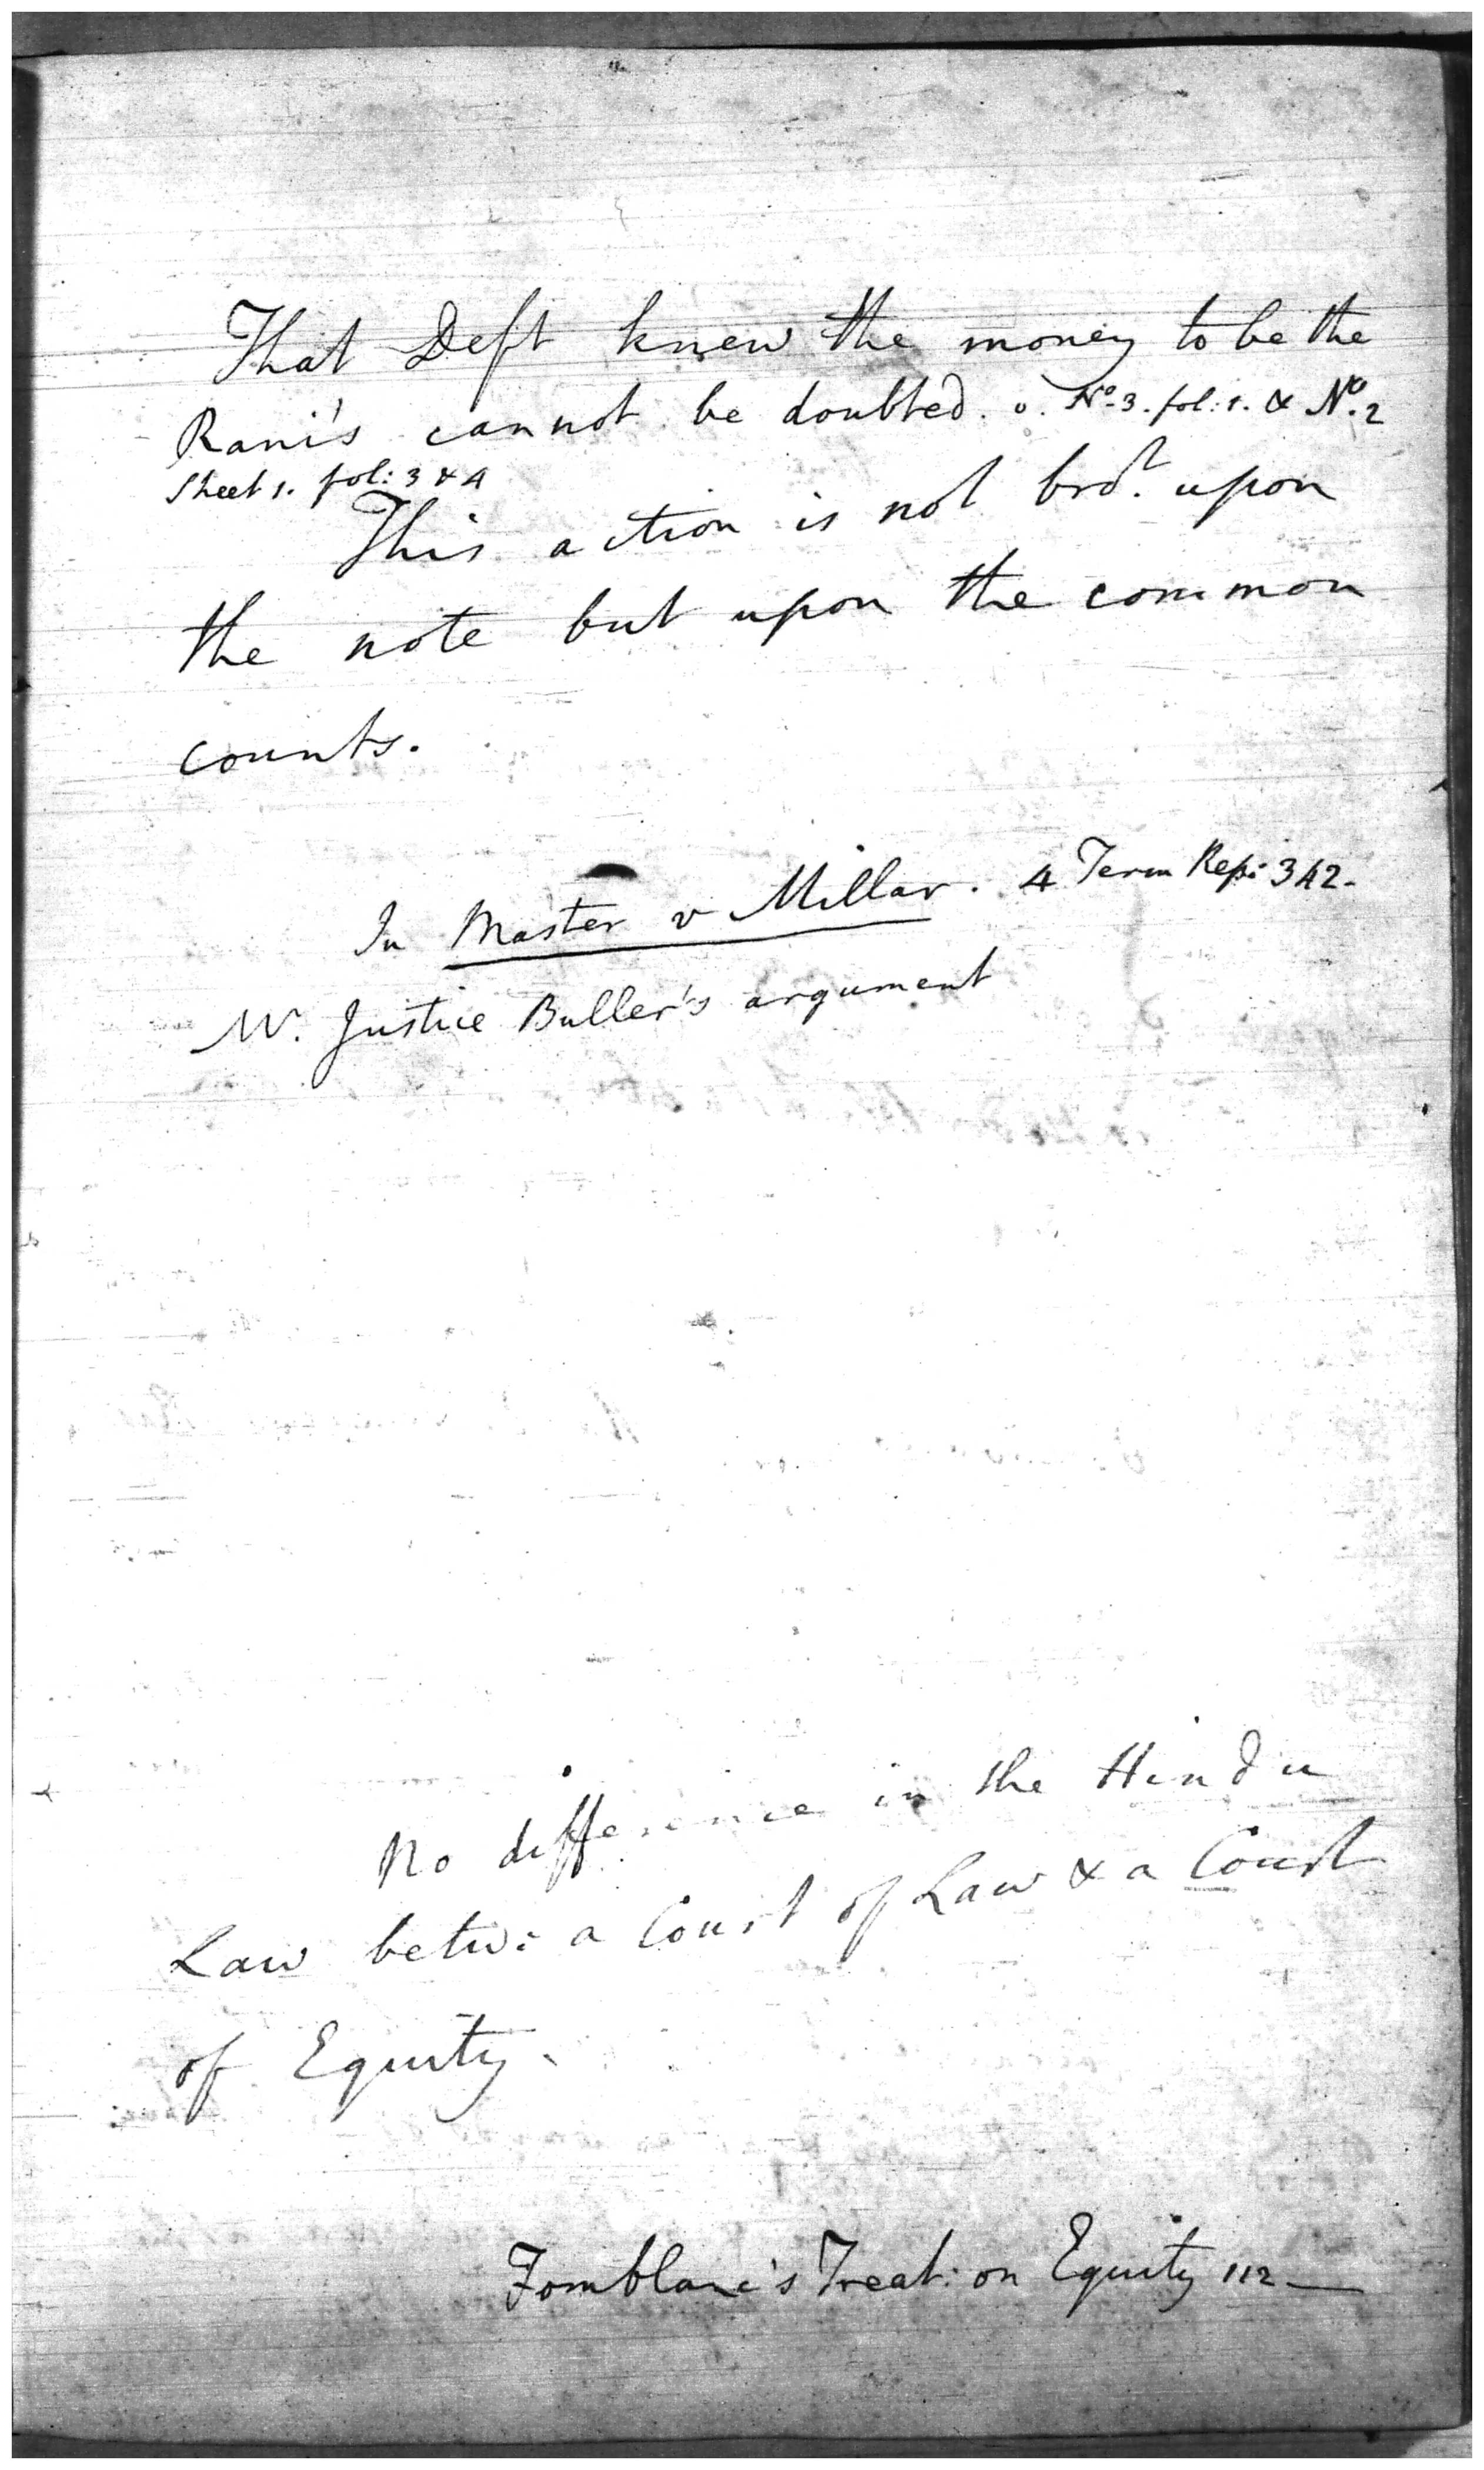 That Deft knew the money to be the
Rani's cannot be doubted. v. No. 3. fol: 1. & No. 2
Sheet 1. fol: 3 & 4
This action is not brot. upon
the note but upon the common
counts.
In Master v Millar. 4 Term Rep: 342.
Mr. Justice Buller's argument
No difference in the Hindu
Law betw: a Court of Law & a Court
of Equity.
Fomblanc's Treat: on Equity 112